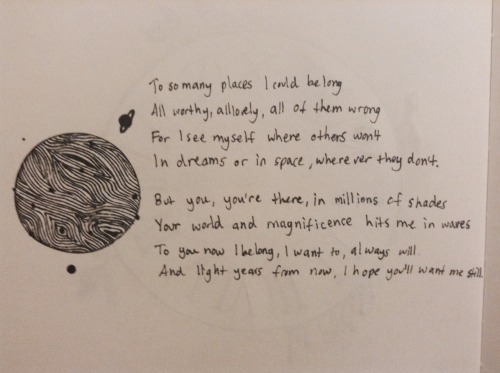 To so many places I could belong
All worthy, all lovely, all of them wrong
For I see myself where others won't
In dreams or in space, wherever they don't.
But you, you're there, in millions of shades
Your world and magnificence hits me in waves
To you now I belong, I want to, always will.
And light years from now, I hope you'll want me still.